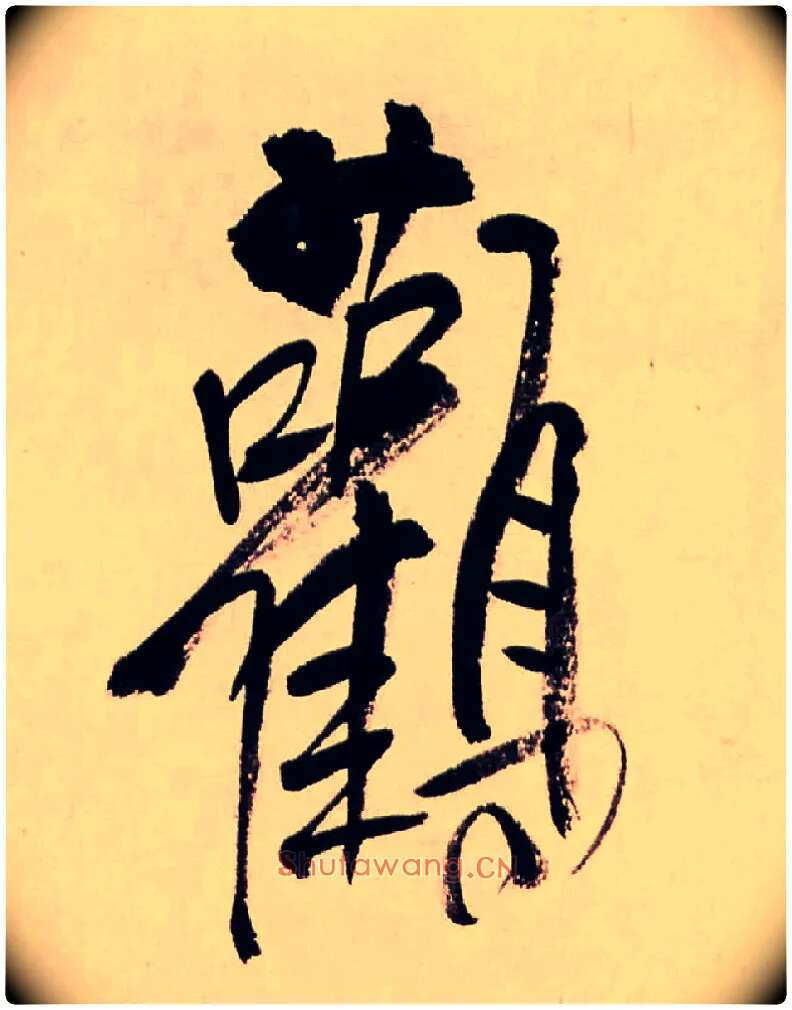 顴
Shufawang.CN